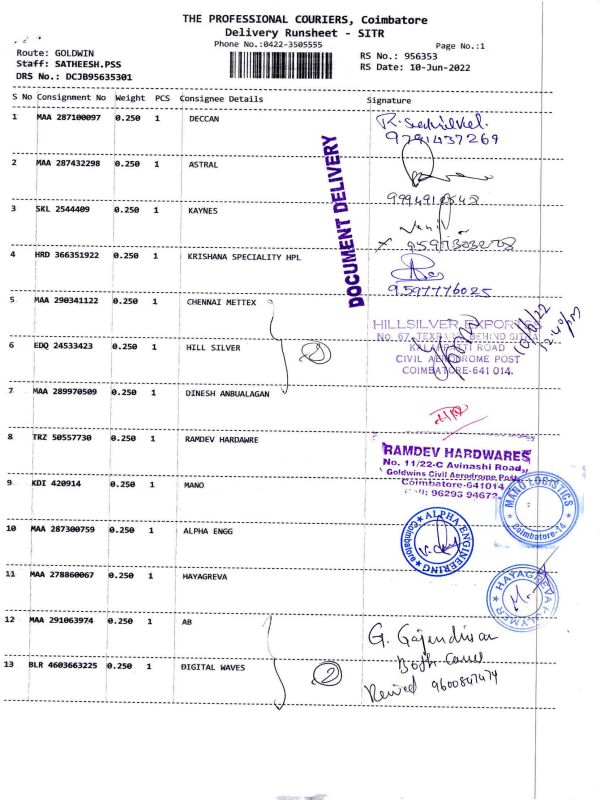 THE PROFESSIONAL COURIERS, Coimbatore
Delivery Runsheet - SITR
Phone No.:0422-3505555
Page No.:1
Route: GOLDWIN
Staff: SATHEESH.PSS
DRS No.: DCJB95635301
RS No.: 956353
RS Date: 10-Jun-2022
S No Consignment No Weight PCS Consignee Details Signature
1 MAA 287100097 0.250 1 DECCAN
9791437269
2 MAA 287432298 0.250 1 ASTRAL
3 SKL 2544409 0.250 1 KAYNES
4 HRD 366351922 0.250 1 KRISHANA SPECIALITY HPL
9597776025
DOCUMENT DELIVERY
5 MAA 290341122 0.250 1 CHENNAI METTEX
6 EDQ 24533423 0.250 1 HILL SILVER
2
HILLSILVER EXPORTS
No. 67, BEHIND
ROAD
CIVIL AERODROME POST
COIMBATORE-641 014.
10/6/22
12.40pm
7 MAA 289970509 0.250 1 DINESH ANBUALAGAN
8 TRZ 50557730 0.250 1 RAMDEV HARDAWRE
RAMDEV HARDWARES
No. 11/22-C Avinashi Road,
Goldwins Civil Aerodrome Post,
Coimbatore-641014
Cell: 96293 94672
9 KDI 420914 0.250 1 MANO
MANO LOGISTICS
Coimbatore-14
10 MAA 287300759 0.250 1 ALPHA ENGG
ALPHA ENGINEERING
Coimbatore
11 MAA 278860067 0.250 1 HAYAGREVA
HAYAGREVA POLYMER
12 MAA 291063974 0.250 1 AB
G. Gajendiran
Both
13 BLR 4603663225 0.250 1 DIGITAL WAVES
2
9600847474